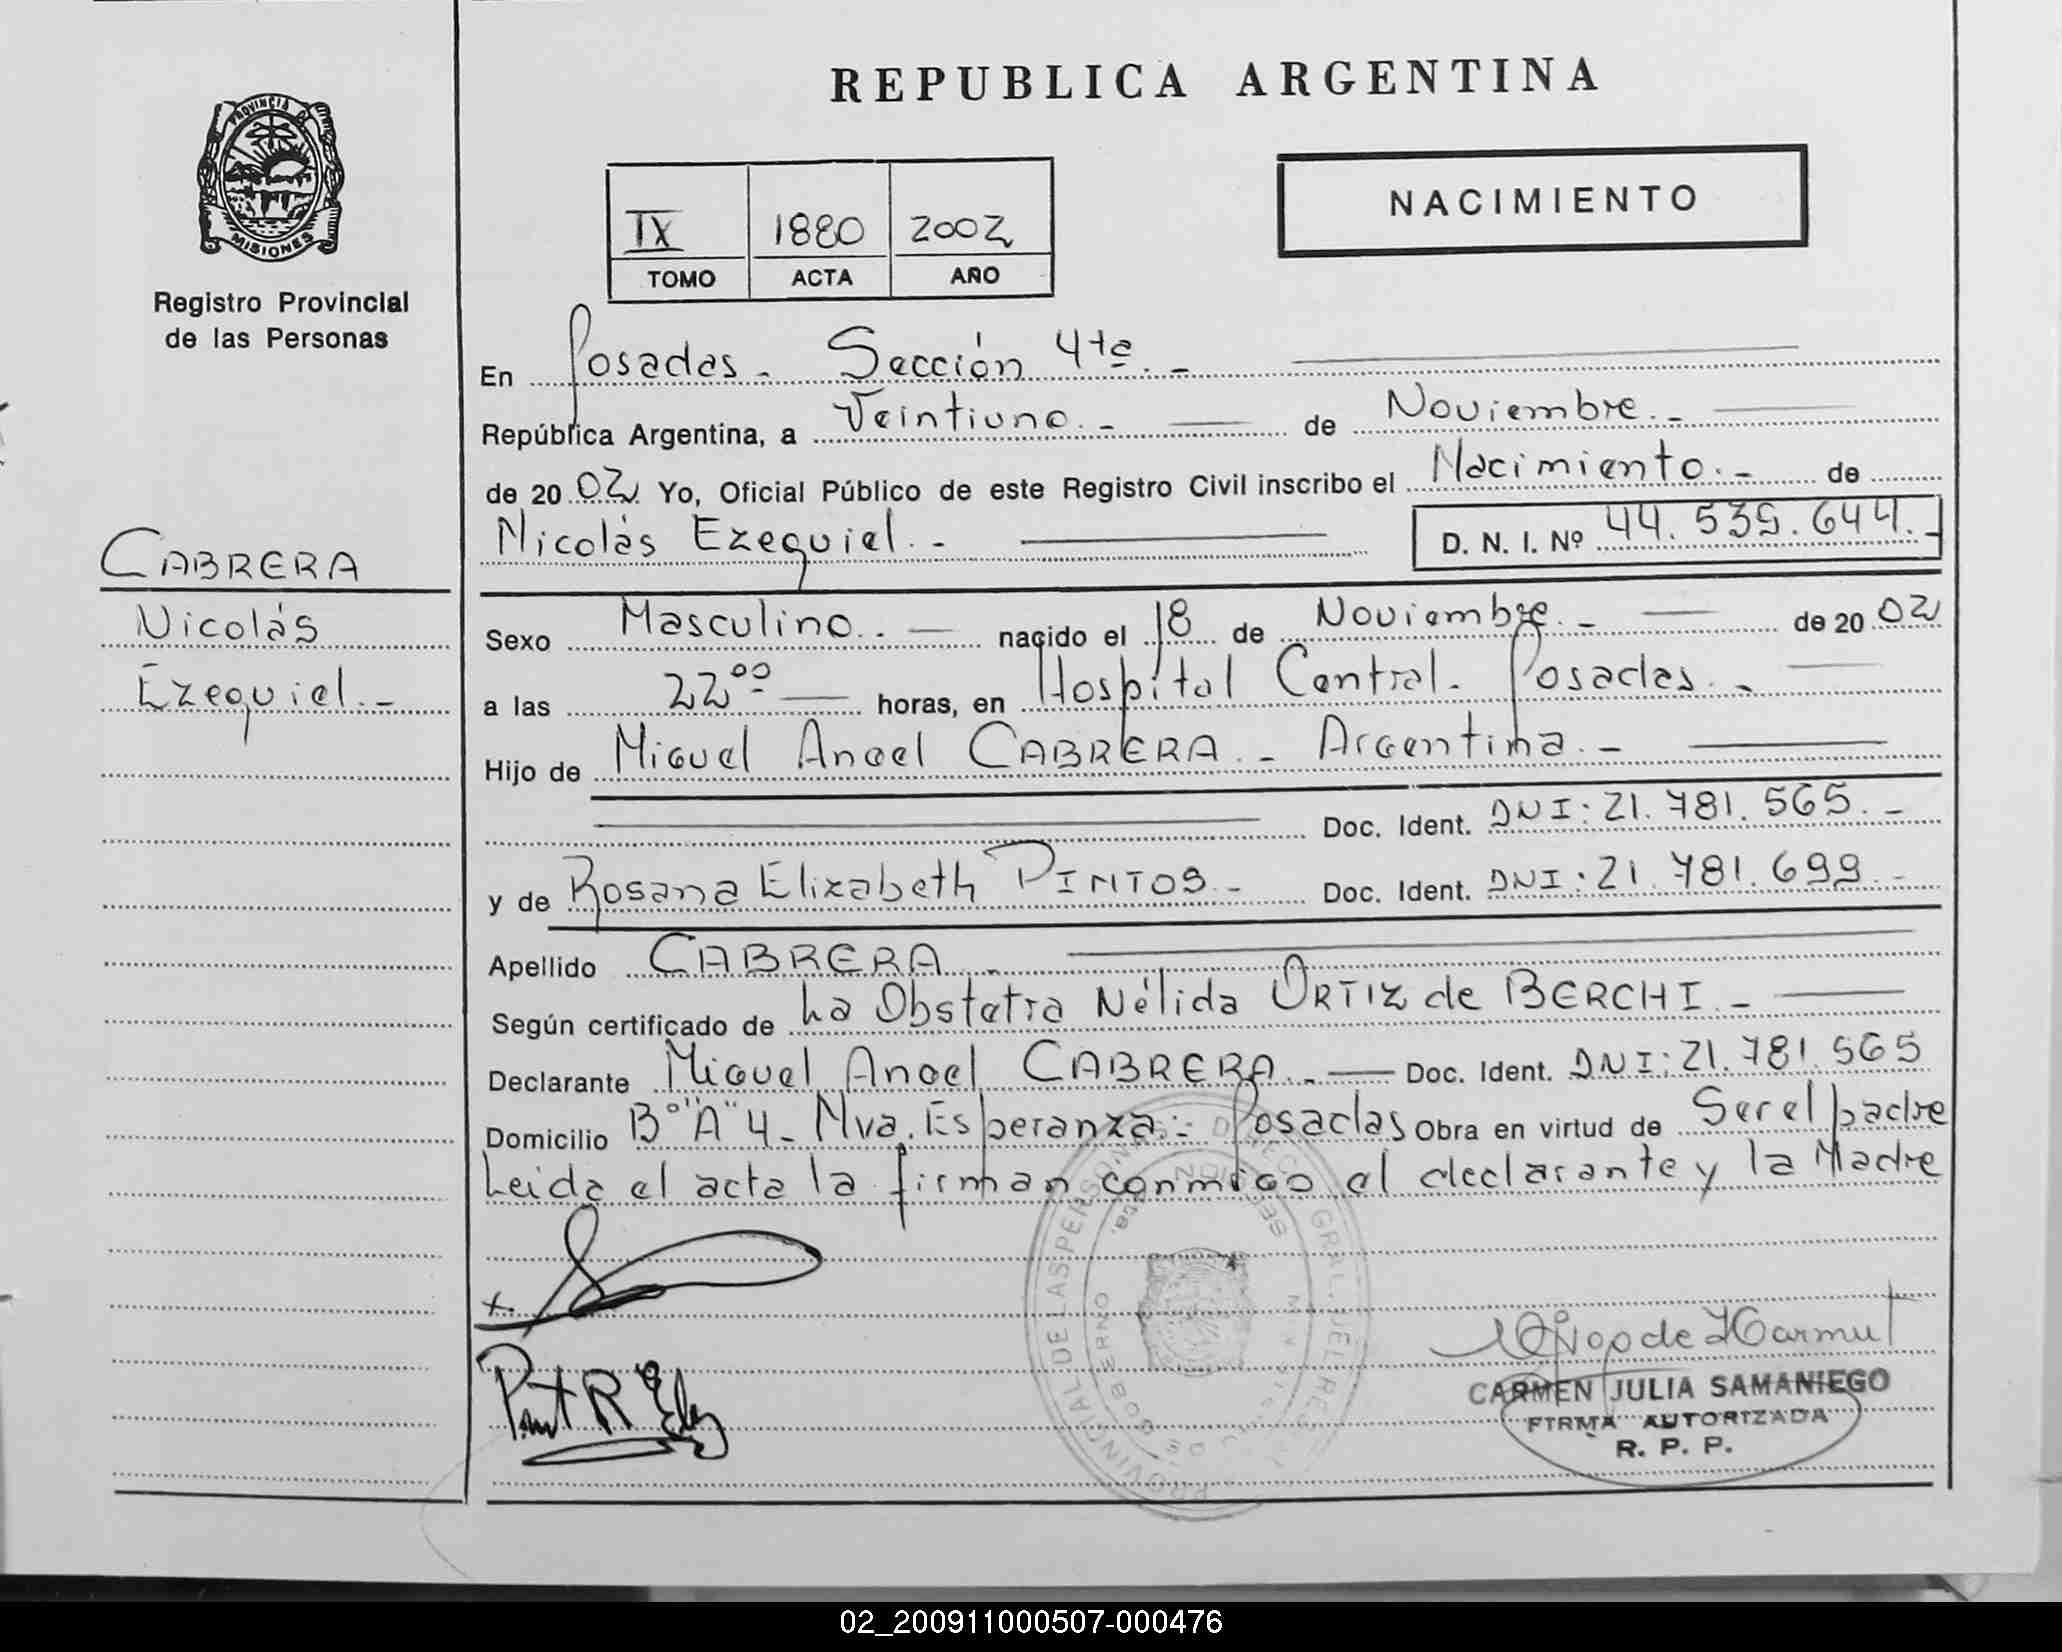 REPUBLICA ARGENTINA
PROVINCIA DE
MISIONES
Registro Provincial
de las Personas
NACIMIENTO
IX 1880 2002
TOMO ACTA AÑO
En Posadas - Sección 4ta. -
República Argentina, a Veintiuno. - de Noviembre. -
de 2002 Yo, Oficial Público de este Registro Civil inscribo el Nacimiento. - de
Nicolás Ezequiel. - D. N. I. Nº 44.535.644. -
CABRERA
Nicolás
Ezequiel. -
Sexo Masculino. - nacido el 18 de Noviembre. - de 2002
a las 22⁰⁰ horas, en Hospital Central - Posadas. -
Hijo de Miguel Angel CABRERA. - Argentina. -
Doc. Ident. DNI: 21.781.565. -
y de Rosana Elizabeth PINTOS. - Doc. Ident. DNI: 21.781.699. -
Apellido CABRERA. -
Según certificado de La Obstetra Nélida ORTIZ de BERCHI. -
Declarante Miguel Angel CABRERA. - Doc. Ident. DNI: 21.781.565
Domicilio Bº "A" 4 - Nva. Esperanza. - Posadas Obra en virtud de Ser el padre
Leida el acta la firman conmigo el declarante y la Madre
CARMEN JULIA SAMANIEGO
FIRMA AUTORIZADA
R. P. P.
02_200911000507-000476